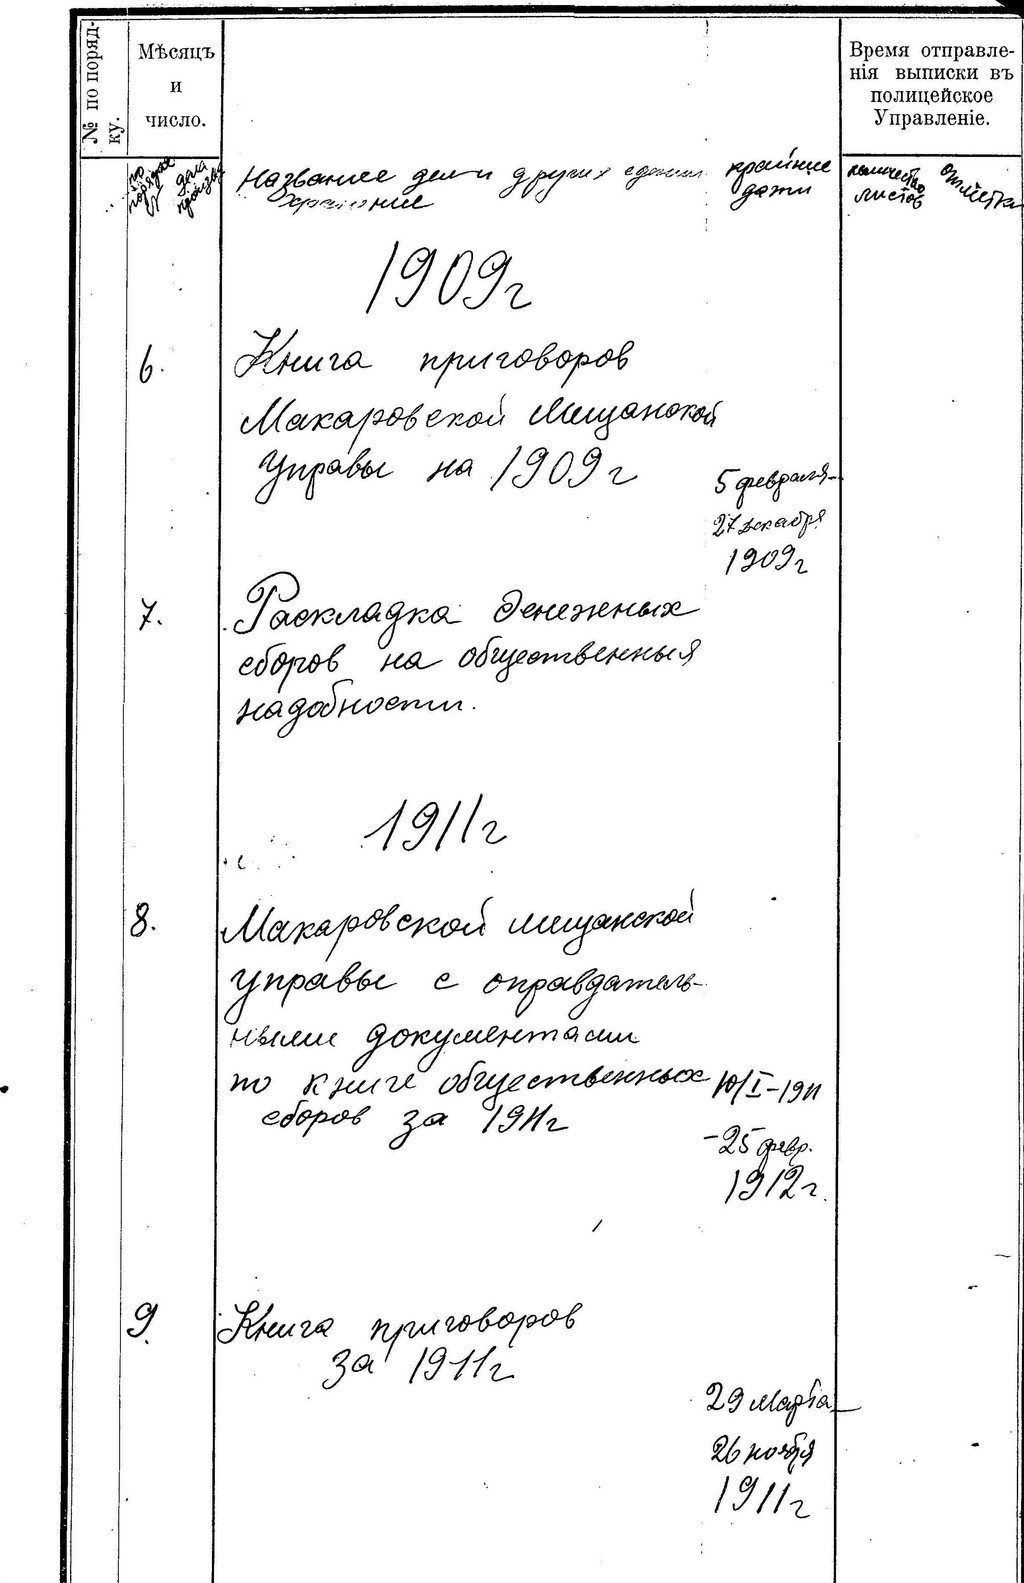 № по поряд-
ку.
Мѣсяцъ
и
число.
Время отправле-
нія выписки въ
полицейское
Управленіе.
по порядку
дела
название дел и других единиц
хранение
крайние
даты
количество
листов
отметка
1909г
6.
Книга приговоров
Макаровской Мещанской
Управы на 1909г
5 февраля-
27 декабря
1909г
7.
Раскладка денежных
сборов на общественныя
надобности.
1911г
8.
Макаровской мещанской
управы с оправдатель-
ными документами
по книге общественных
сборов за 1911г
10/I-1911
-25 февр.
1912г.
9.
Книга приговоров
за 1911г
29 марта-
26 ноября
1911г